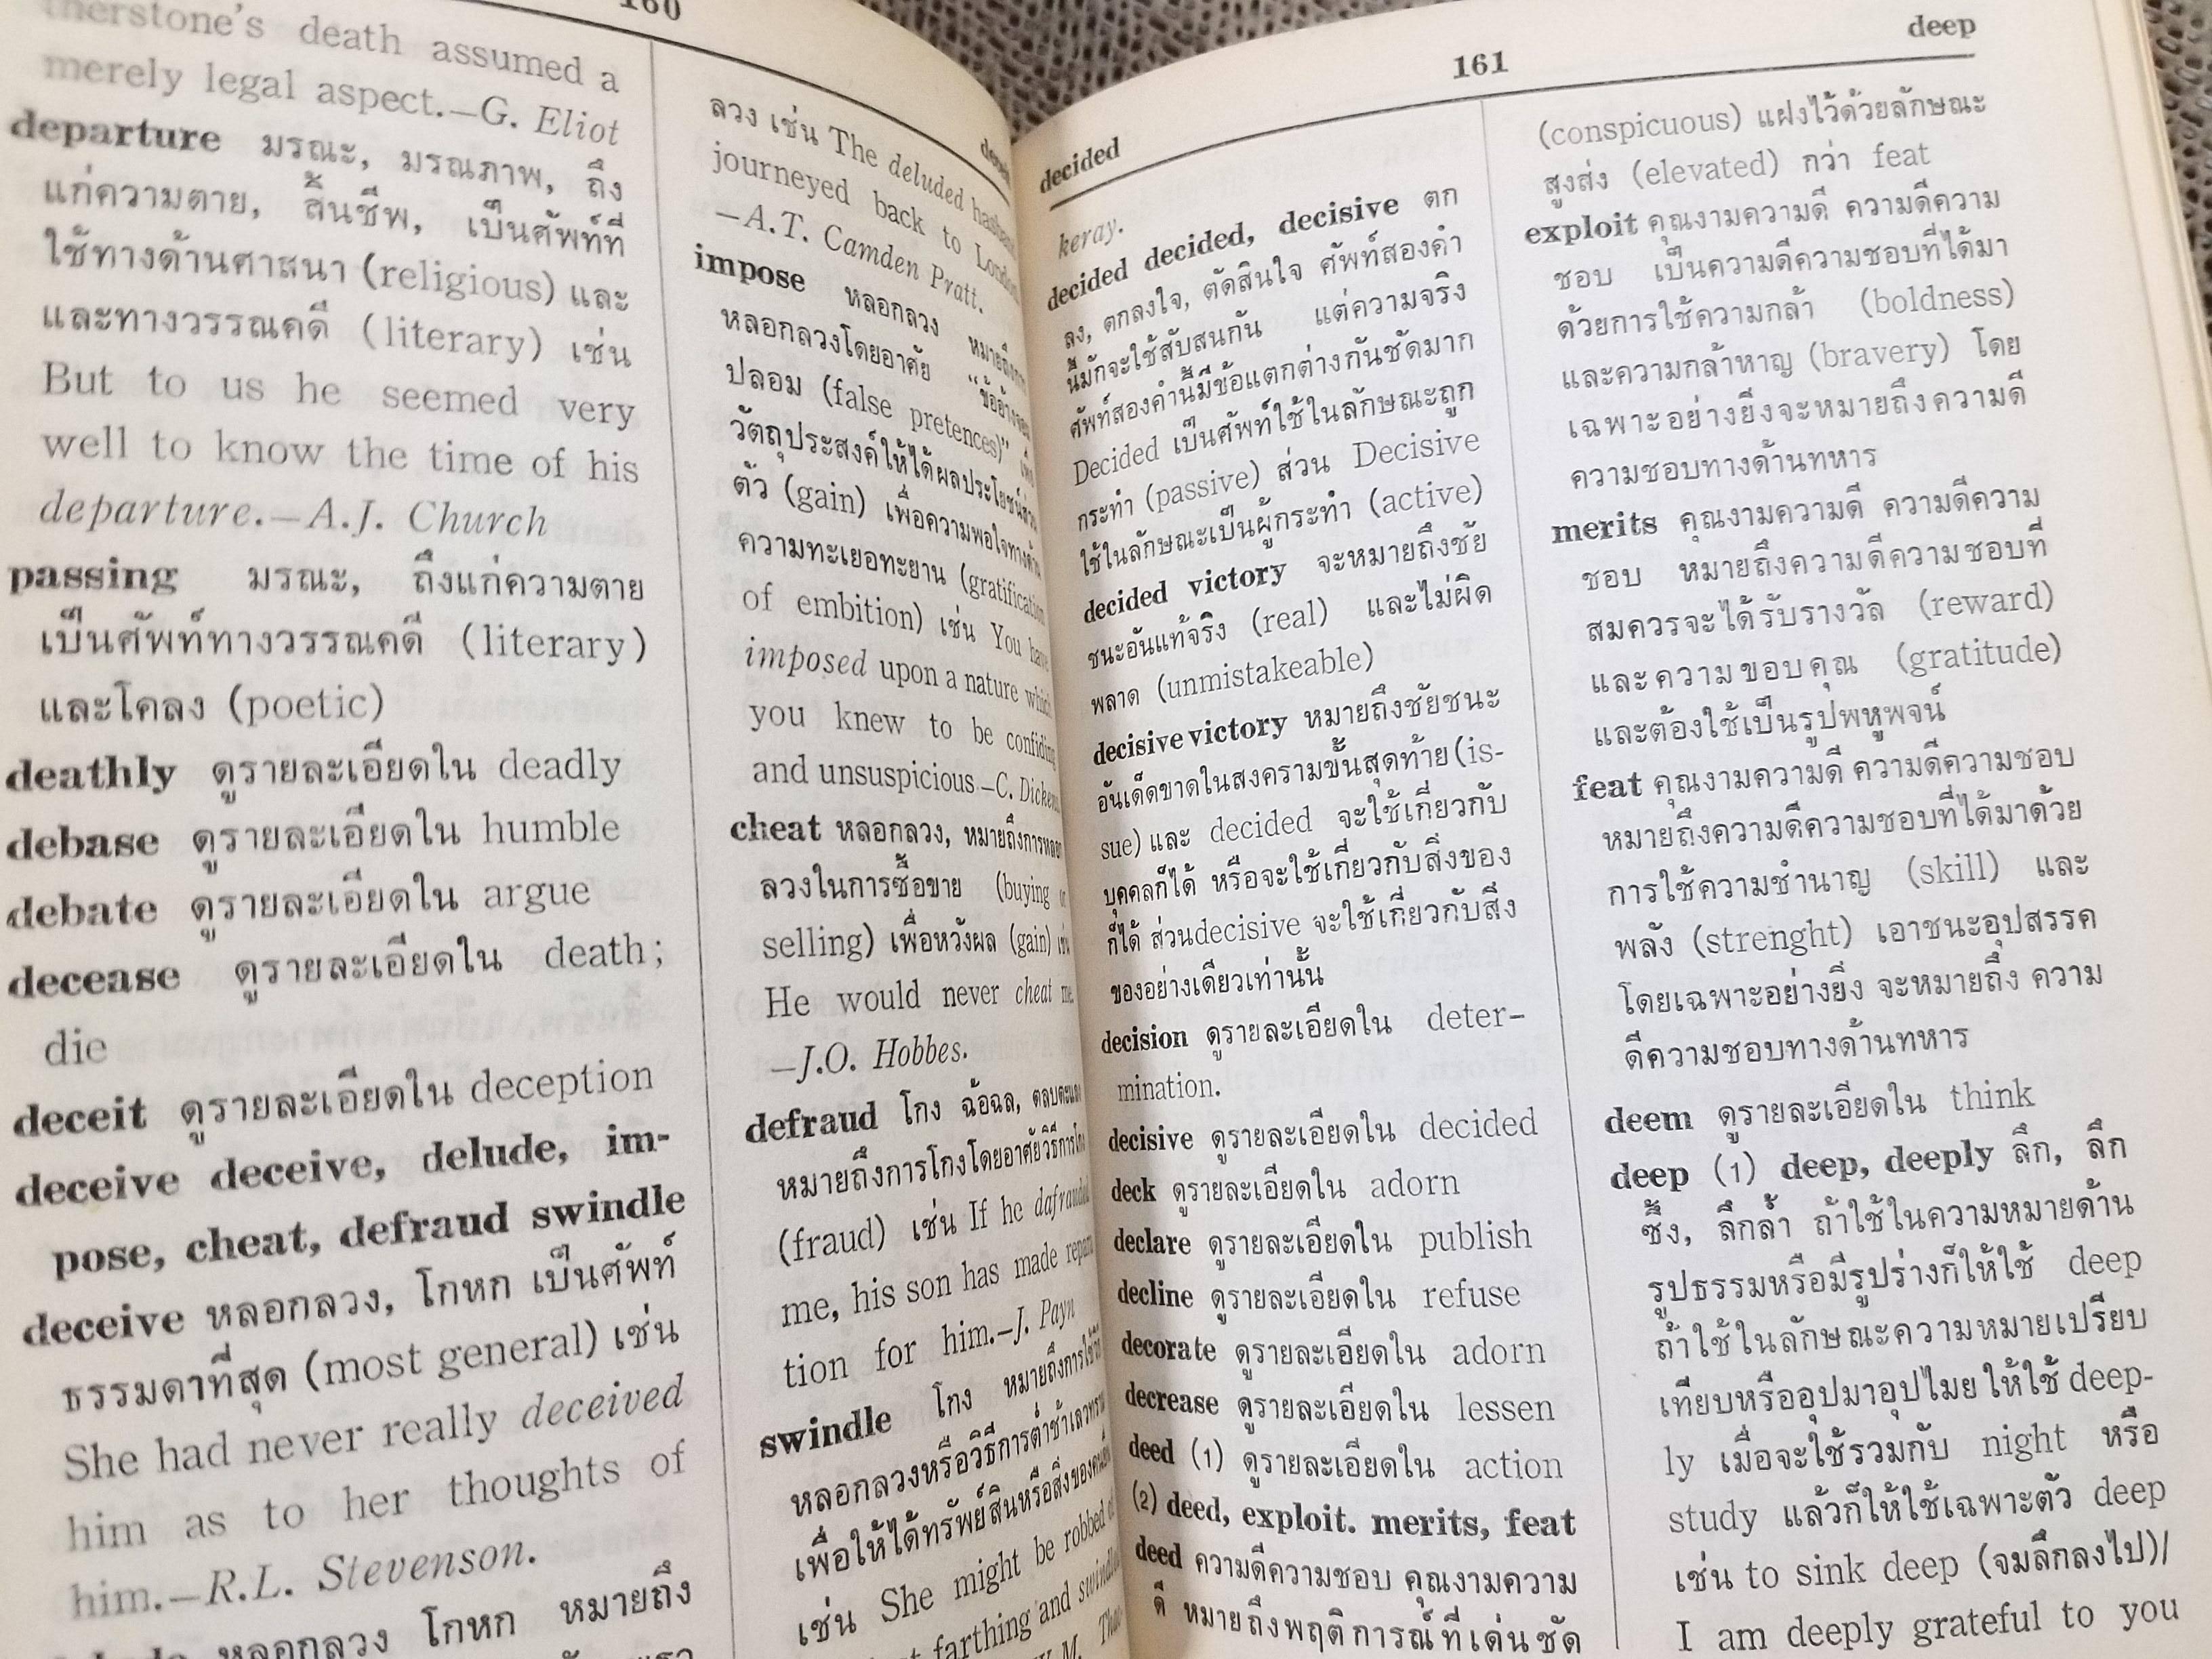 160
therstone's death assumed a
merely legal aspect.—G. Eliot
departure มรณะ, มรณภาพ, ถึง
แก่ความตาย, สิ้นชีพ, เป็นศัพท์ที่
ใช้ทางด้านศาสนา (religious) และ
และทางวรรณคดี (literary) เช่น
But to us he seemed very
well to know the time of his
departure.—A.J. Church
passing มรณะ, ถึงแก่ความตาย
เป็นศัพท์ทางวรรณคดี (literary)
และโคลง (poetic)
deathly ดูรายละเอียดใน deadly
debase ดูรายละเอียดใน humble
debate ดูรายละเอียดใน argue
decease ดูรายละเอียดใน death;
die
deceit ดูรายละเอียดใน deception
deceive deceive, delude, im-
pose, cheat, defraud swindle
deceive หลอกลวง, โกหก เป็นศัพท์
ธรรมดาที่สุด (most general) เช่น
She had never really deceived
him as to her thoughts of
him.—R.L. Stevenson.
หลอกลวง โกหก หมายถึง
ลวง เช่น The deluded husband
journeyed back to London
—A.T. Camden Pratt.
impose หลอกลวง หมายถึงการ
หลอกลวงโดยอาศัย "ข้ออ้างจอม
ปลอม (false pretences)" เพื่อ
วัตถุประสงค์ให้ได้ผลประโยชน์ส่วน
ตัว (gain) เพื่อความพอใจทางด้าน
ความทะเยอทะยาน (gratification
of embition) เช่น You have
imposed upon a nature which
you knew to be confiding
and unsuspicious—C. Dickens
cheat หลอกลวง, หมายถึงการหลอก
ลวงในการซื้อขาย (buying or
selling) เพื่อหวังผล (gain) เช่น
He would never cheat me.
—J.O. Hobbes.
defraud โกง ฉ้อฉล, ตลบตะแลง
หมายถึงการโกงโดยอาศัยวิธีการโกง
(fraud) เช่น If he dafrauded
me, his son has made repara
tion for him.—J. Payn
swindle โกง หมายถึงการใช้วิธี
หลอกลวงหรือวิธีการต่ำช้าเลวทราม
เพื่อให้ได้ทรัพย์สินหรือสิ่งของคนอื่น
เช่น She might be robbed of
farthing and swindled
161
deep
decided
keray.
decided decided, decisive ตก
ลง, ตกลงใจ, ตัดสินใจ ศัพท์สองคำ
นี้มักจะใช้สับสนกัน แต่ความจริง
ศัพท์สองคำนี้มีข้อแตกต่างกันชัดมาก
Decided เป็นศัพท์ใช้ในลักษณะถูก
กระทำ (passive) ส่วน Decisive
ใช้ในลักษณะเป็นผู้กระทำ (active)
decided victory จะหมายถึงชัย
ชนะอันแท้จริง (real) และไม่ผิด
พลาด (unmistakeable)
decisive victory หมายถึงชัยชนะ
อันเด็ดขาดในสงครามขั้นสุดท้าย (is-
sue) และ decided จะใช้เกี่ยวกับ
บุคคลก็ได้ หรือจะใช้เกี่ยวกับสิ่งของ
ก็ได้ ส่วนdecisive จะใช้เกี่ยวกับสิ่ง
ของอย่างเดียวเท่านั้น
decision ดูรายละเอียดใน deter-
mination.
decisive ดูรายละเอียดใน decided
deck ดูรายละเอียดใน adorn
declare ดูรายละเอียดใน publish
decline ดูรายละเอียดใน refuse
decorate ดูรายละเอียดใน adorn
decrease ดูรายละเอียดใน lessen
deed (1) ดูรายละเอียดใน action
(2) deed, exploit. merits, feat
deed ความดีความชอบ คุณงามความ
ดี หมายถึงพฤติการณ์ที่เด่นชัด
(conspicuous) แฝงไว้ด้วยลักษณะ
สูงส่ง (elevated) กว่า feat
exploit คุณงามความดี ความดีความ
ชอบ เป็นความดีความชอบที่ได้มา
ด้วยการใช้ความกล้า (boldness)
และความกล้าหาญ (bravery) โดย
เฉพาะอย่างยิ่งจะหมายถึงความดี
ความชอบทางด้านทหาร
merits คุณงามความดี ความดีความ
ชอบ หมายถึงความดีความชอบที่
สมควรจะได้รับรางวัล (reward)
และความขอบคุณ (gratitude)
และต้องใช้เป็นรูปพหูพจน์
feat คุณงามความดี ความดีความชอบ
หมายถึงความดีความชอบที่ได้มาด้วย
การใช้ความชำนาญ (skill) และ
พลัง (strenght) เอาชนะอุปสรรค
โดยเฉพาะอย่างยิ่ง จะหมายถึง ความ
ดีความชอบทางด้านทหาร
deem ดูรายละเอียดใน think
deep (1) deep, deeply ลึก, ลึก
ซึ้ง, ลึกล้ำ ถ้าใช้ในความหมายด้าน
รูปธรรมหรือมีรูปร่างก็ให้ใช้ deep
ถ้าใช้ในลักษณะความหมายเปรียบ
เทียบหรืออุปมาอุปไมย ให้ใช้ deep-
ly เมื่อจะใช้รวมกับ night หรือ
study แล้วก็ให้ใช้เฉพาะตัว deep
เช่น to sink deep (จมลึกลงไป)/
I am deeply grateful to you